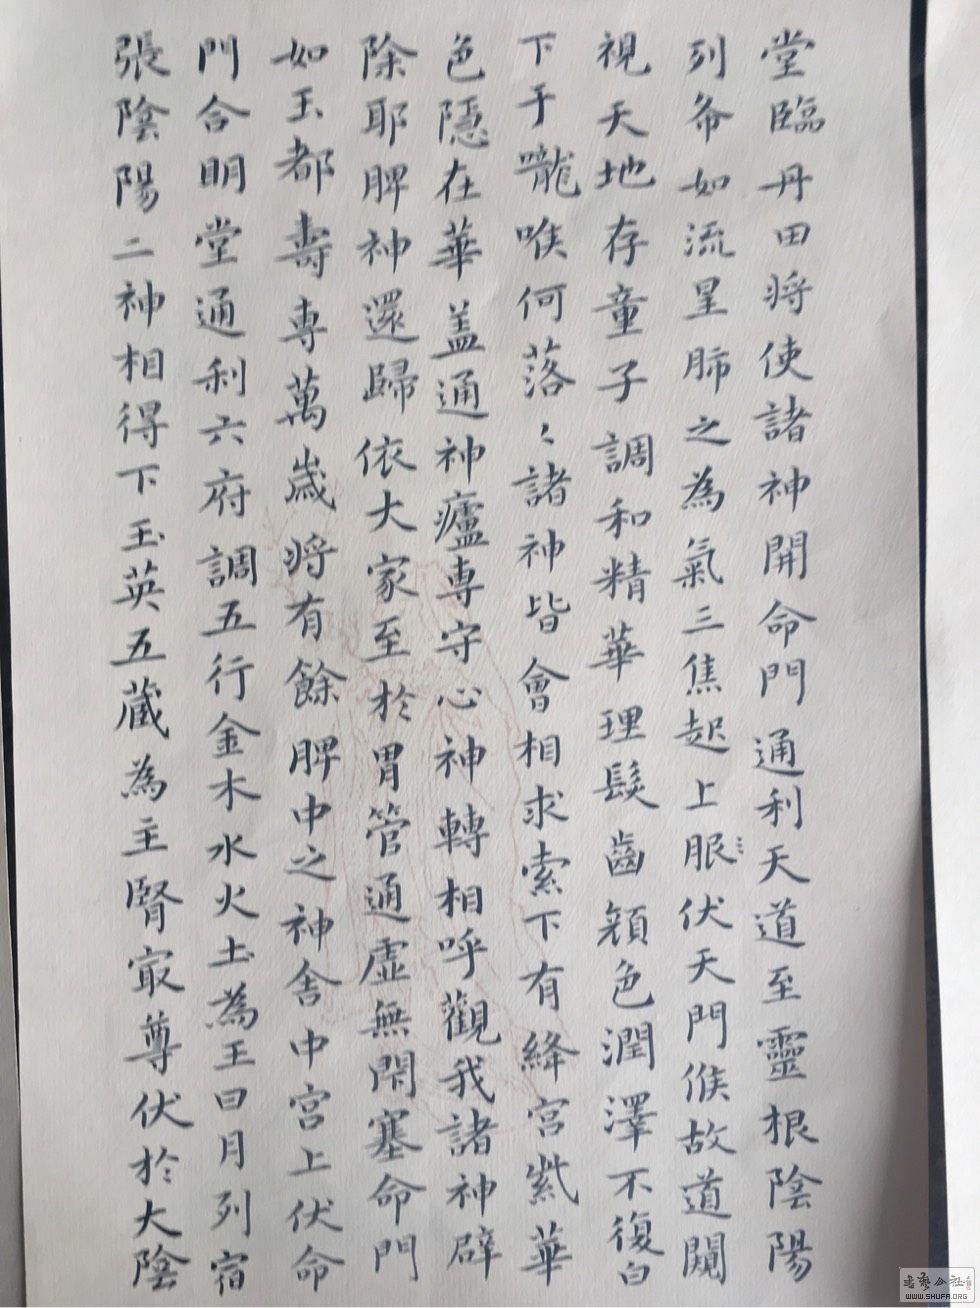 堂臨丹田將使諸神開命門通利天道至靈根陰陽
列布如流星肺之為氣三焦起上服伏天門候故道闚
視天地存童子調和精華理髮齒顏色潤澤不復白
下于嚨喉何落〻諸神皆會相求索下有絳宮紫華
色隱在華盖通神廬専守心神轉相呼觀我諸神辟
除耶脾神還歸依大家至於胃管通虛無閇塞命門
如玉都壽専萬歲將有餘脾中之神舍中宮上伏命
門合明堂通利六府調五行金木水火土為王日月列宿
張陰陽二神相得下玉英五藏為主腎㝡尊伏於大陰
WWW.SHUFA.ORG